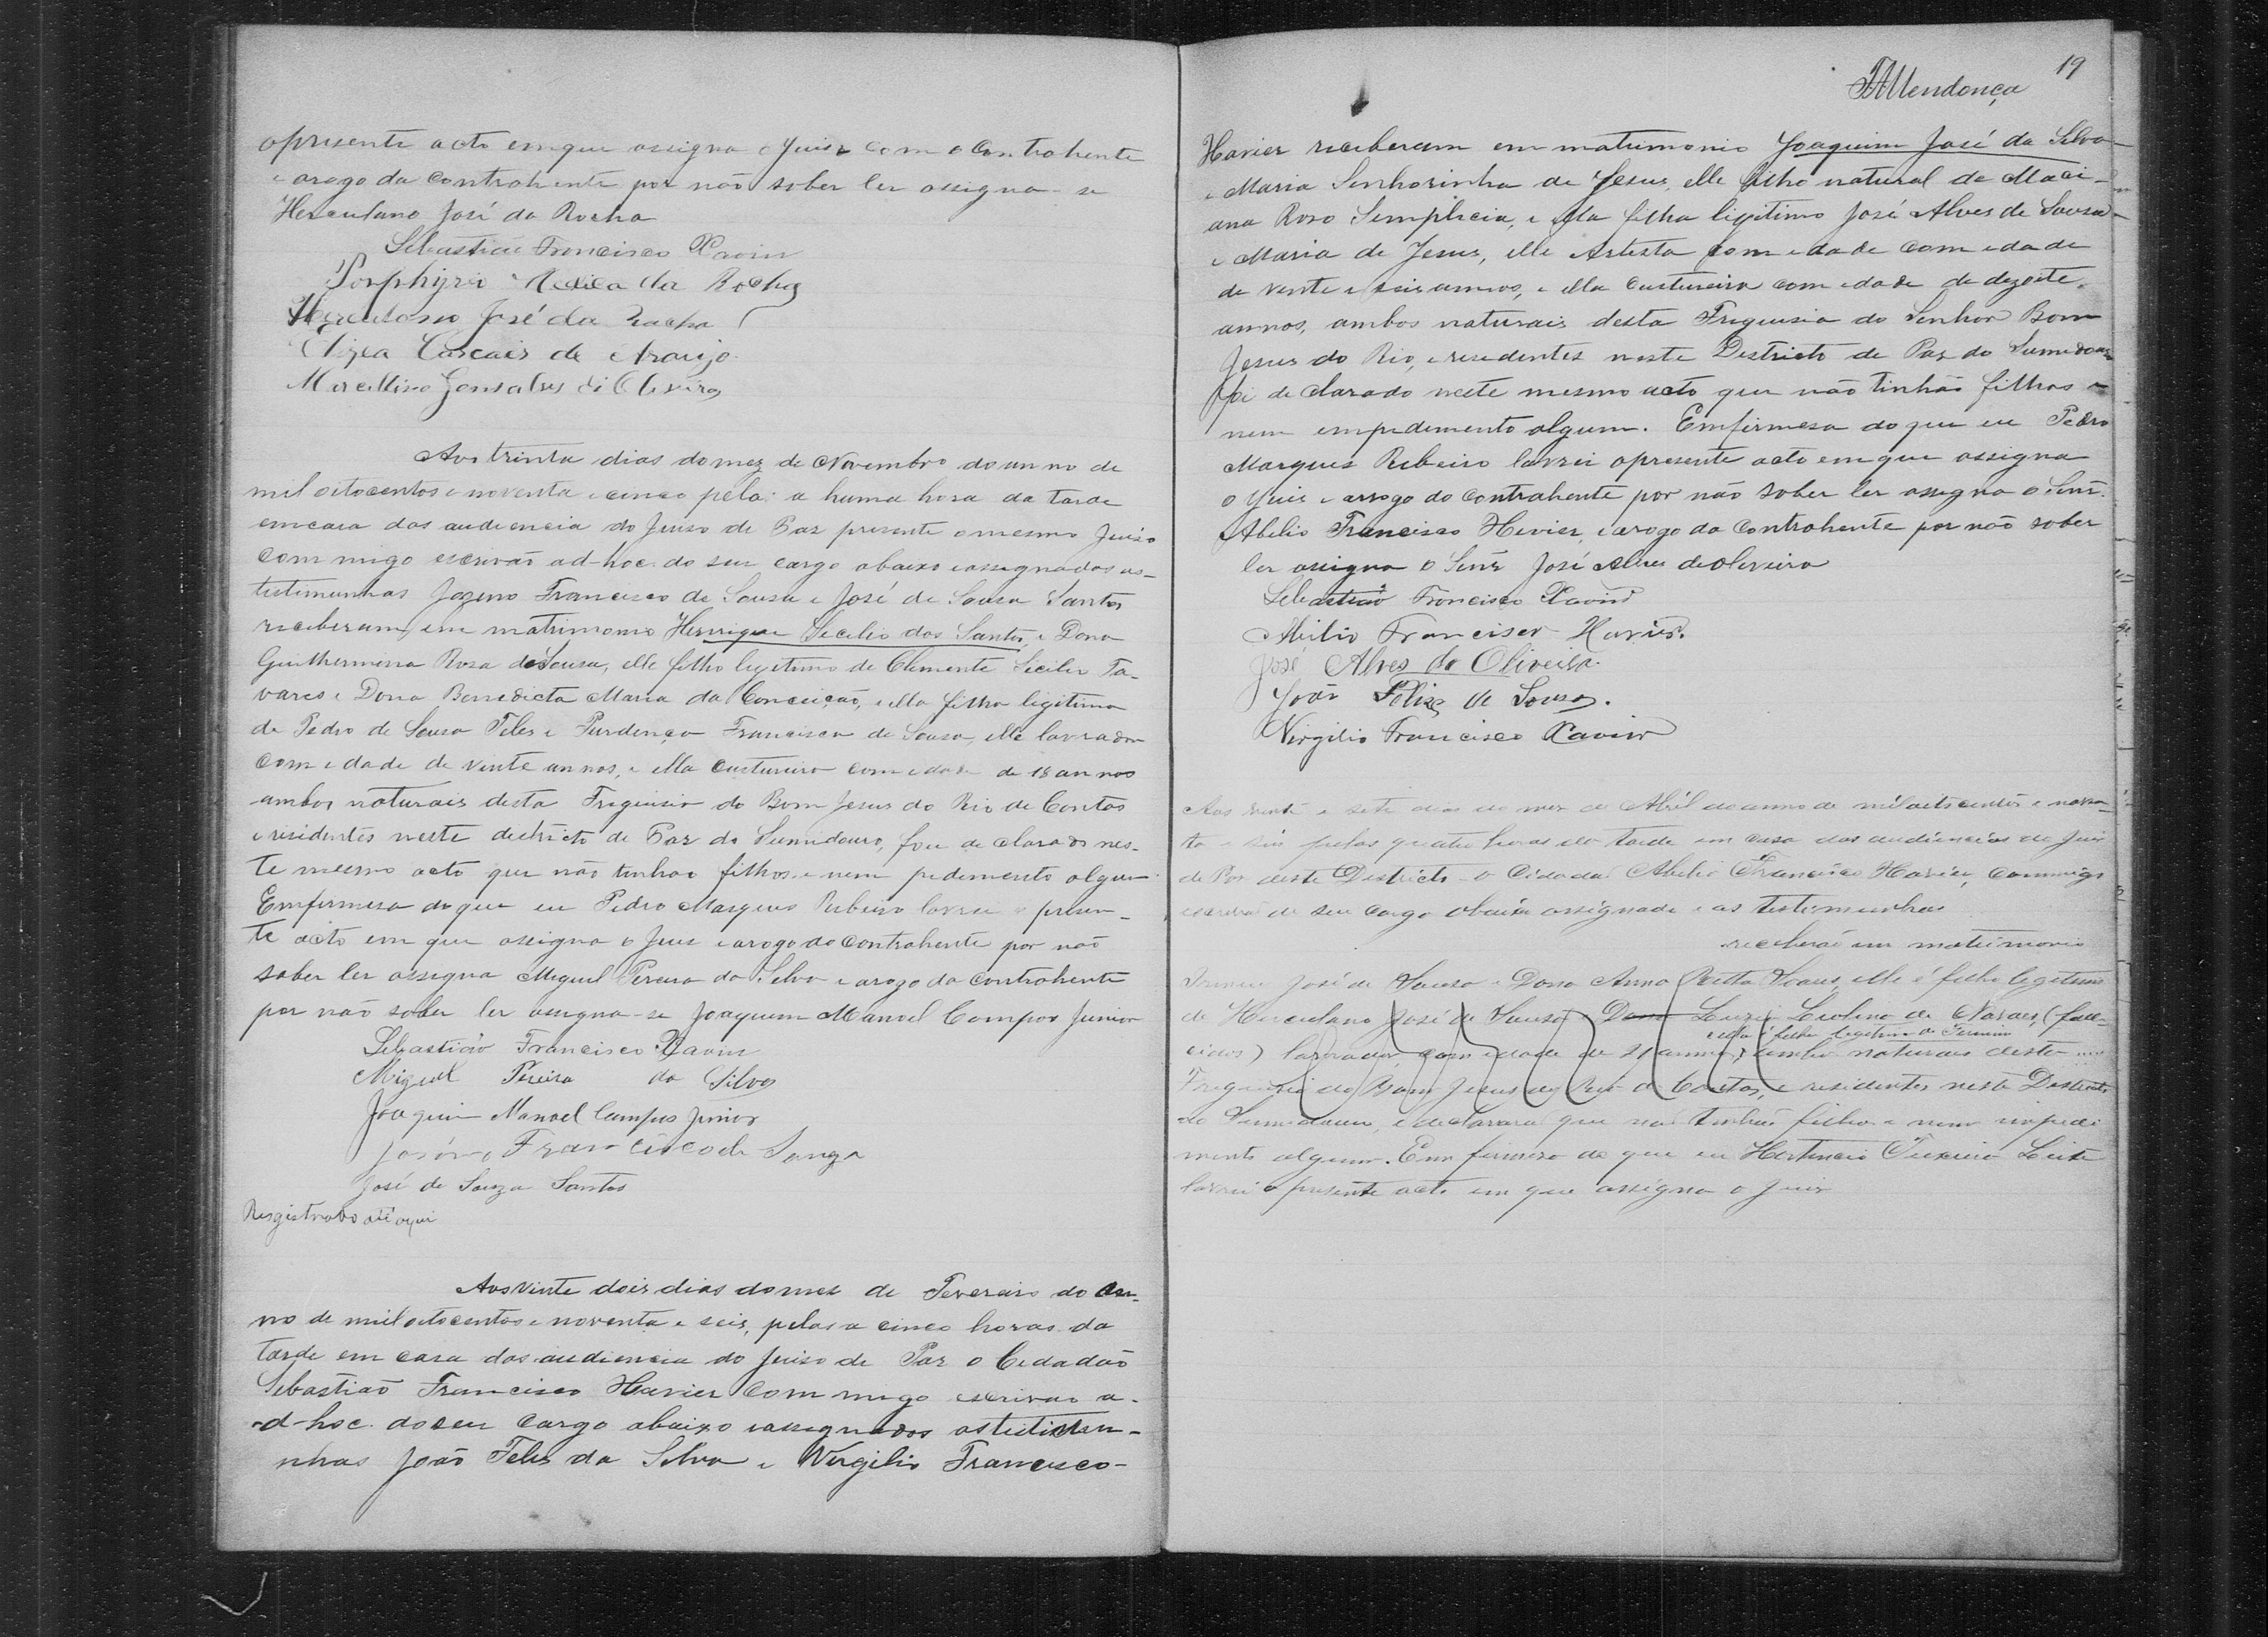 apresente acto emque assigna o Juiz com o Contrahente
e arogo da Contrahente por não saber ler assigna-se
Herculano José da Rocha
Sebastião Francisco Xavier
Porphyrio da Rocha
Herculano José da Rocha
Cascais de Araujo
Marcellino Gonsalves di Oliveira
Aos trinta dias do mez de Novembro do anno de
mil oitocentos e noventa e cinco pela: a huma hora da tarde
em casa das audiencia do Juiso de Paz presente o mesmo Juiso
com migo escrivão ad-hoc do seu cargo abaixo eassignados as-
testimunhas Jozino Francisco de Sousa e José de Sousa Santos
receberam em matrimonio Henrique Secilio dos Santos, e Dona
Guilhermina Rosa de Sousa, elle filho legitimo de Clemente Secilio Ta-
vares e Dona Benedicta Maria da Conceição, e ella filha legitima
de Pedro de Sousa Teles e Francisca de Sousa, elle lavrador
com edade de vinte annos, e ella custureira com edade de 18 annos
ambos naturais desta Freguisia do Bom Jesus do Rio de Contas
e residentes neste districto de Paz do Sumidouro, foi de clarado nes-
te mesmo acto que não tinhão filhos e nem pedimento algum
Emfirmesa do que eu Pedro Marques Ribeiro lavrei o presen-
te acto em que assigna o Juiz e arogo do Contrahente por não
saber ler assigna Miguel Pereira da Silva e arogo da Contrahente
por não saber ler assigna-se Joaquim Manoel Campos Junior
Sebastião Francisco Xavier
Miguel Pereira da Silva
Joaquim Manoel Campos Junior
Josino Francisco de Souza
José de Souza Santos
Resgistrado até aqui
Aos vinte dois dias do mez de Fevereiro do an-
no de mil oitocentos e noventa e seis, pelas a cinco horas da
tarde em casa das audiencia do Juiso de Paz o Cedadão
Sebastião Francisco Xavier com migo escrivão a-
d-hoc. do seu cargo abaixo eassignados as testimu-
nhas João Felis da Silva e Virgilio Francisco-
19
Mendonça
Xavier receberam em matrimonio Joaquim José da Silva-
e Maria Senhorinha de Jesus, elle filho natural de Maci-
ana Rosa Semplicia, e ella filha ligitima José Alves de Sousa-
e Maria de Jesus, elle Artista com edade com edade
de vente e seis annos, e ella custureira com edade de dezoite
annos, ambos naturais desta Freguisia do Senhor Bom
Jesus do Rio, e residentes neste Destricto de Paz do Sumidouro
foi de clarado neste mesmo acto que não tinhão filhos e
nem empedimento algum. Emfirmesa do que eu Pedro
Marques Ribeiro lavrei apresente acto em que assigna
o Juiz e arrogo do Contrahente por não saber ler assigna o Senr.
Abelio Francisco Xevier, e arogo da Contrahente por não saber
ler assigna o Senr José Alves de Oliveira
Sebastião Francisco Xavier
Abilio Francisco Xavier.
José Alves de Oliveira.
João Felix de Souza.
Virgilio Francisco Xavier
Aos vinte e sete dias do mez de Abril do anno de mil oitocentos e noven-
ta e seis pelas quatro horas da tarde em casa das audiencias do Juiz
de Paz deste Districto o Cidadão Abilio Francisco Xavier, commigo
escrivão de seu cargo abaixo assignado e as testimunhas
receberão em matrimonio
José de Sousa e Dona Anna Soares, elle é filho legitimo
de Herculano José de Sousa e Dona de Novaes, (falle-
e ella é filha legitima de Firmino
cidos) lavrador com edade de 21 annos, ambos naturaes desta
Freguesia do Bom Jesus do Rio de Contas, e residentes neste Destricto
do Sumidouro, e declarara que não tinhão filhos e nem impedi
mento algum. Em firmeza do que eu Teixeira Leite
lavrei o presente acto em que assigna o Juiz